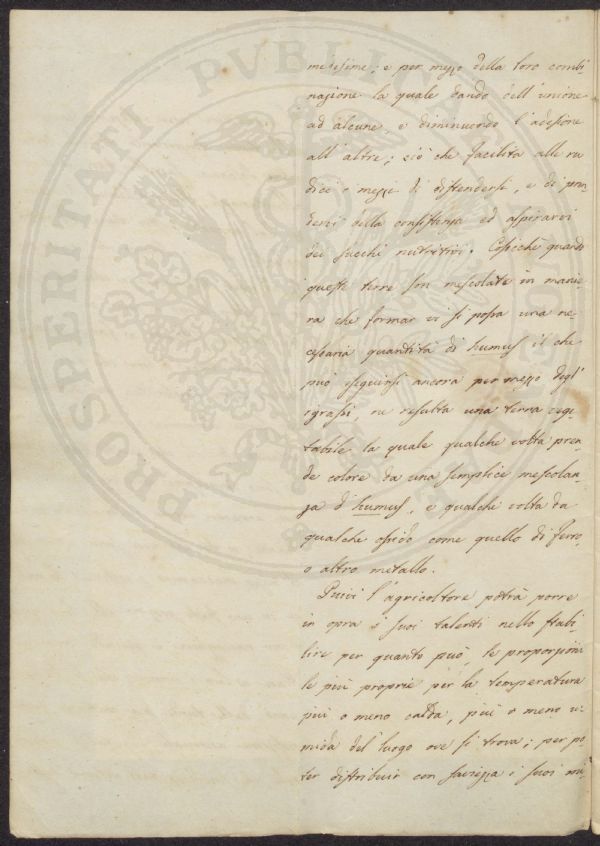 PROSPERITATI PUBLICAE
medesime; e per mezzo della loro combi
nazione la quale dando dell'unione
ad alcune, e diminuendo l'adesione
all'altre; ciò che facilita alle ra
dici i mezzi di distendersi, e di pren
dervi della consistenza ed aspirarvi
dei succhi nutritivi. Cosicchè quando
queste terre son mescolate in manie
ra che formar vi si possa una ne
cessaria quantità di humus il che
può eseguirsi ancora per mezzo degl'
ingrassi, ne resulta una terra vege
tabile la quale qualche volta pren
de colore da una semplice mescolan
za d'humus, e qualche volta da
qualche ossido come quello di ferro
o altro metallo.
Quivi l'agricoltore potrà porre
in opra i suoi talenti nello stabi
lire per quanto può, le proporzioni
le più proprie per la temperatura
più o meno calda, più o meno u=
mida del luogo ove si trova; per po=
ter distribuir con saviezza i suoi